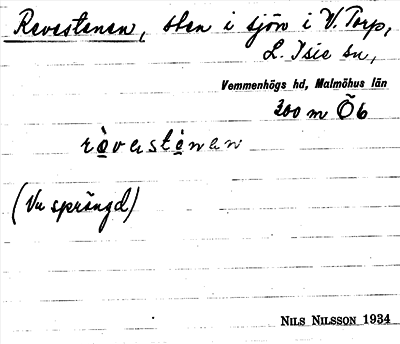 Revestenen, sten i sjön i V. Torp,
L. Isie sn,
Vemmenhögs hd, Malmöhus län
200 m Öb
rèvəsténən
(Nu sprängd)
NILS NILSSON 1934